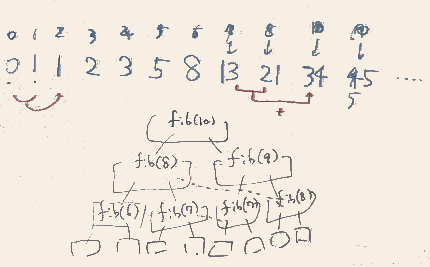 0 1 2 3 4 5 6 7 8
0 1 1 2 3 5 8 13 21 34 45 .....
5
+
fib(10)
fib(8) fib(9)
fib(6) fib(7) fib(7) fib(8)